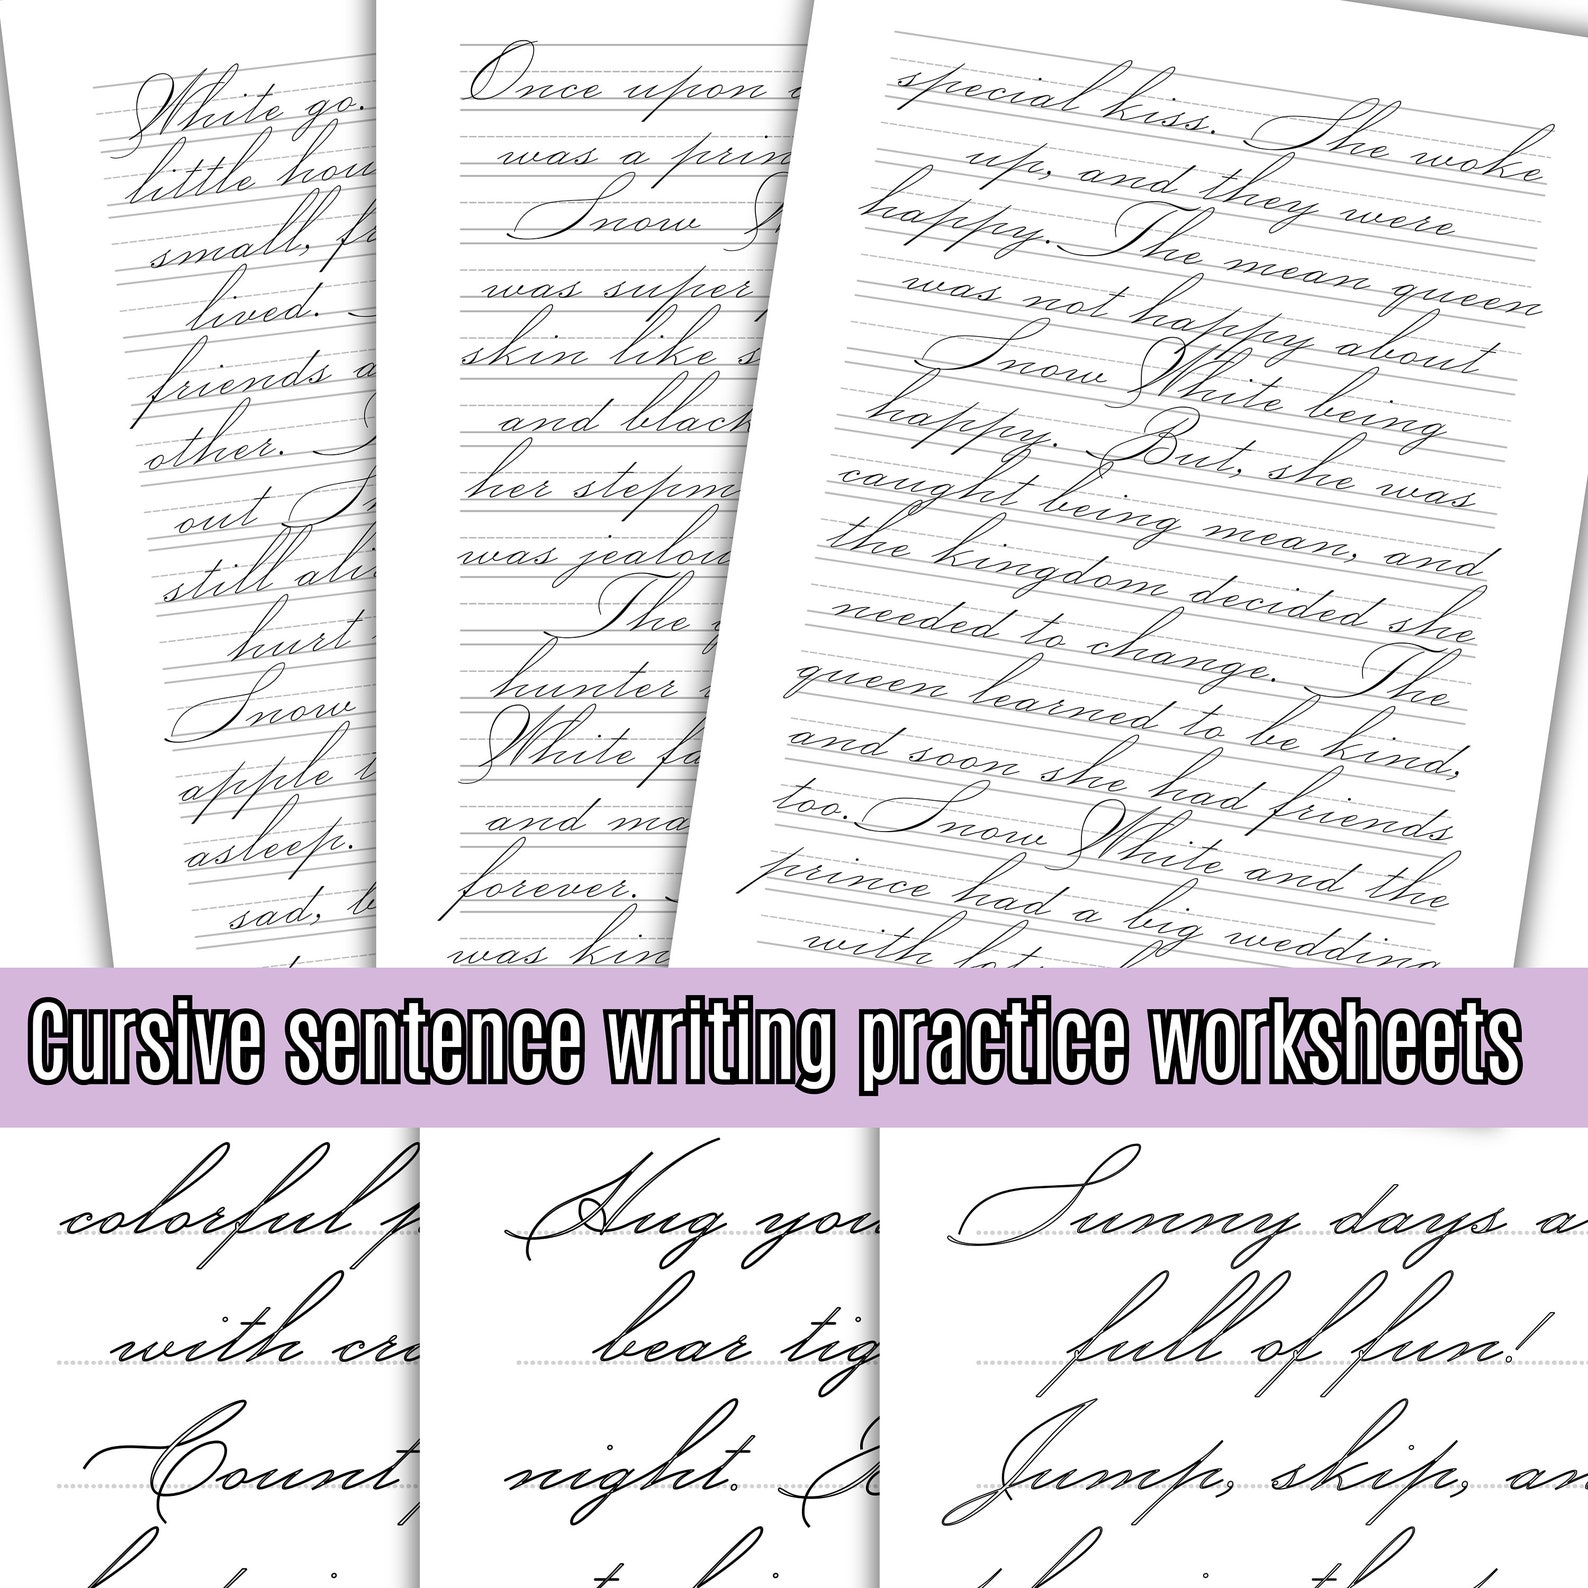 White go
little hou
small, fr
lived.
friends a
other.
out
still ali
hurt
Snow
apple
asleep.
sad, b
Once upon
was a prin
Snow
was super
skin like s
and black
her stepm
was jealou
The
hunter
White fa
and ma
forever.
was kin
special kiss. She woke
up, and they were
happy. The mean queen
was not happy about
Snow White being
happy. But, she was
caught being mean, and
the kingdom decided she
needed to change. The
queen learned to be kind,
and soon she had friends
too. Snow White and the
prince had a big wedding
with lot
Cursive sentence writing practice worksheets
colorful p
with cra
Count
Hug you
bear tig
night.
Sunny days a
full of fun!
Jump, skip, an